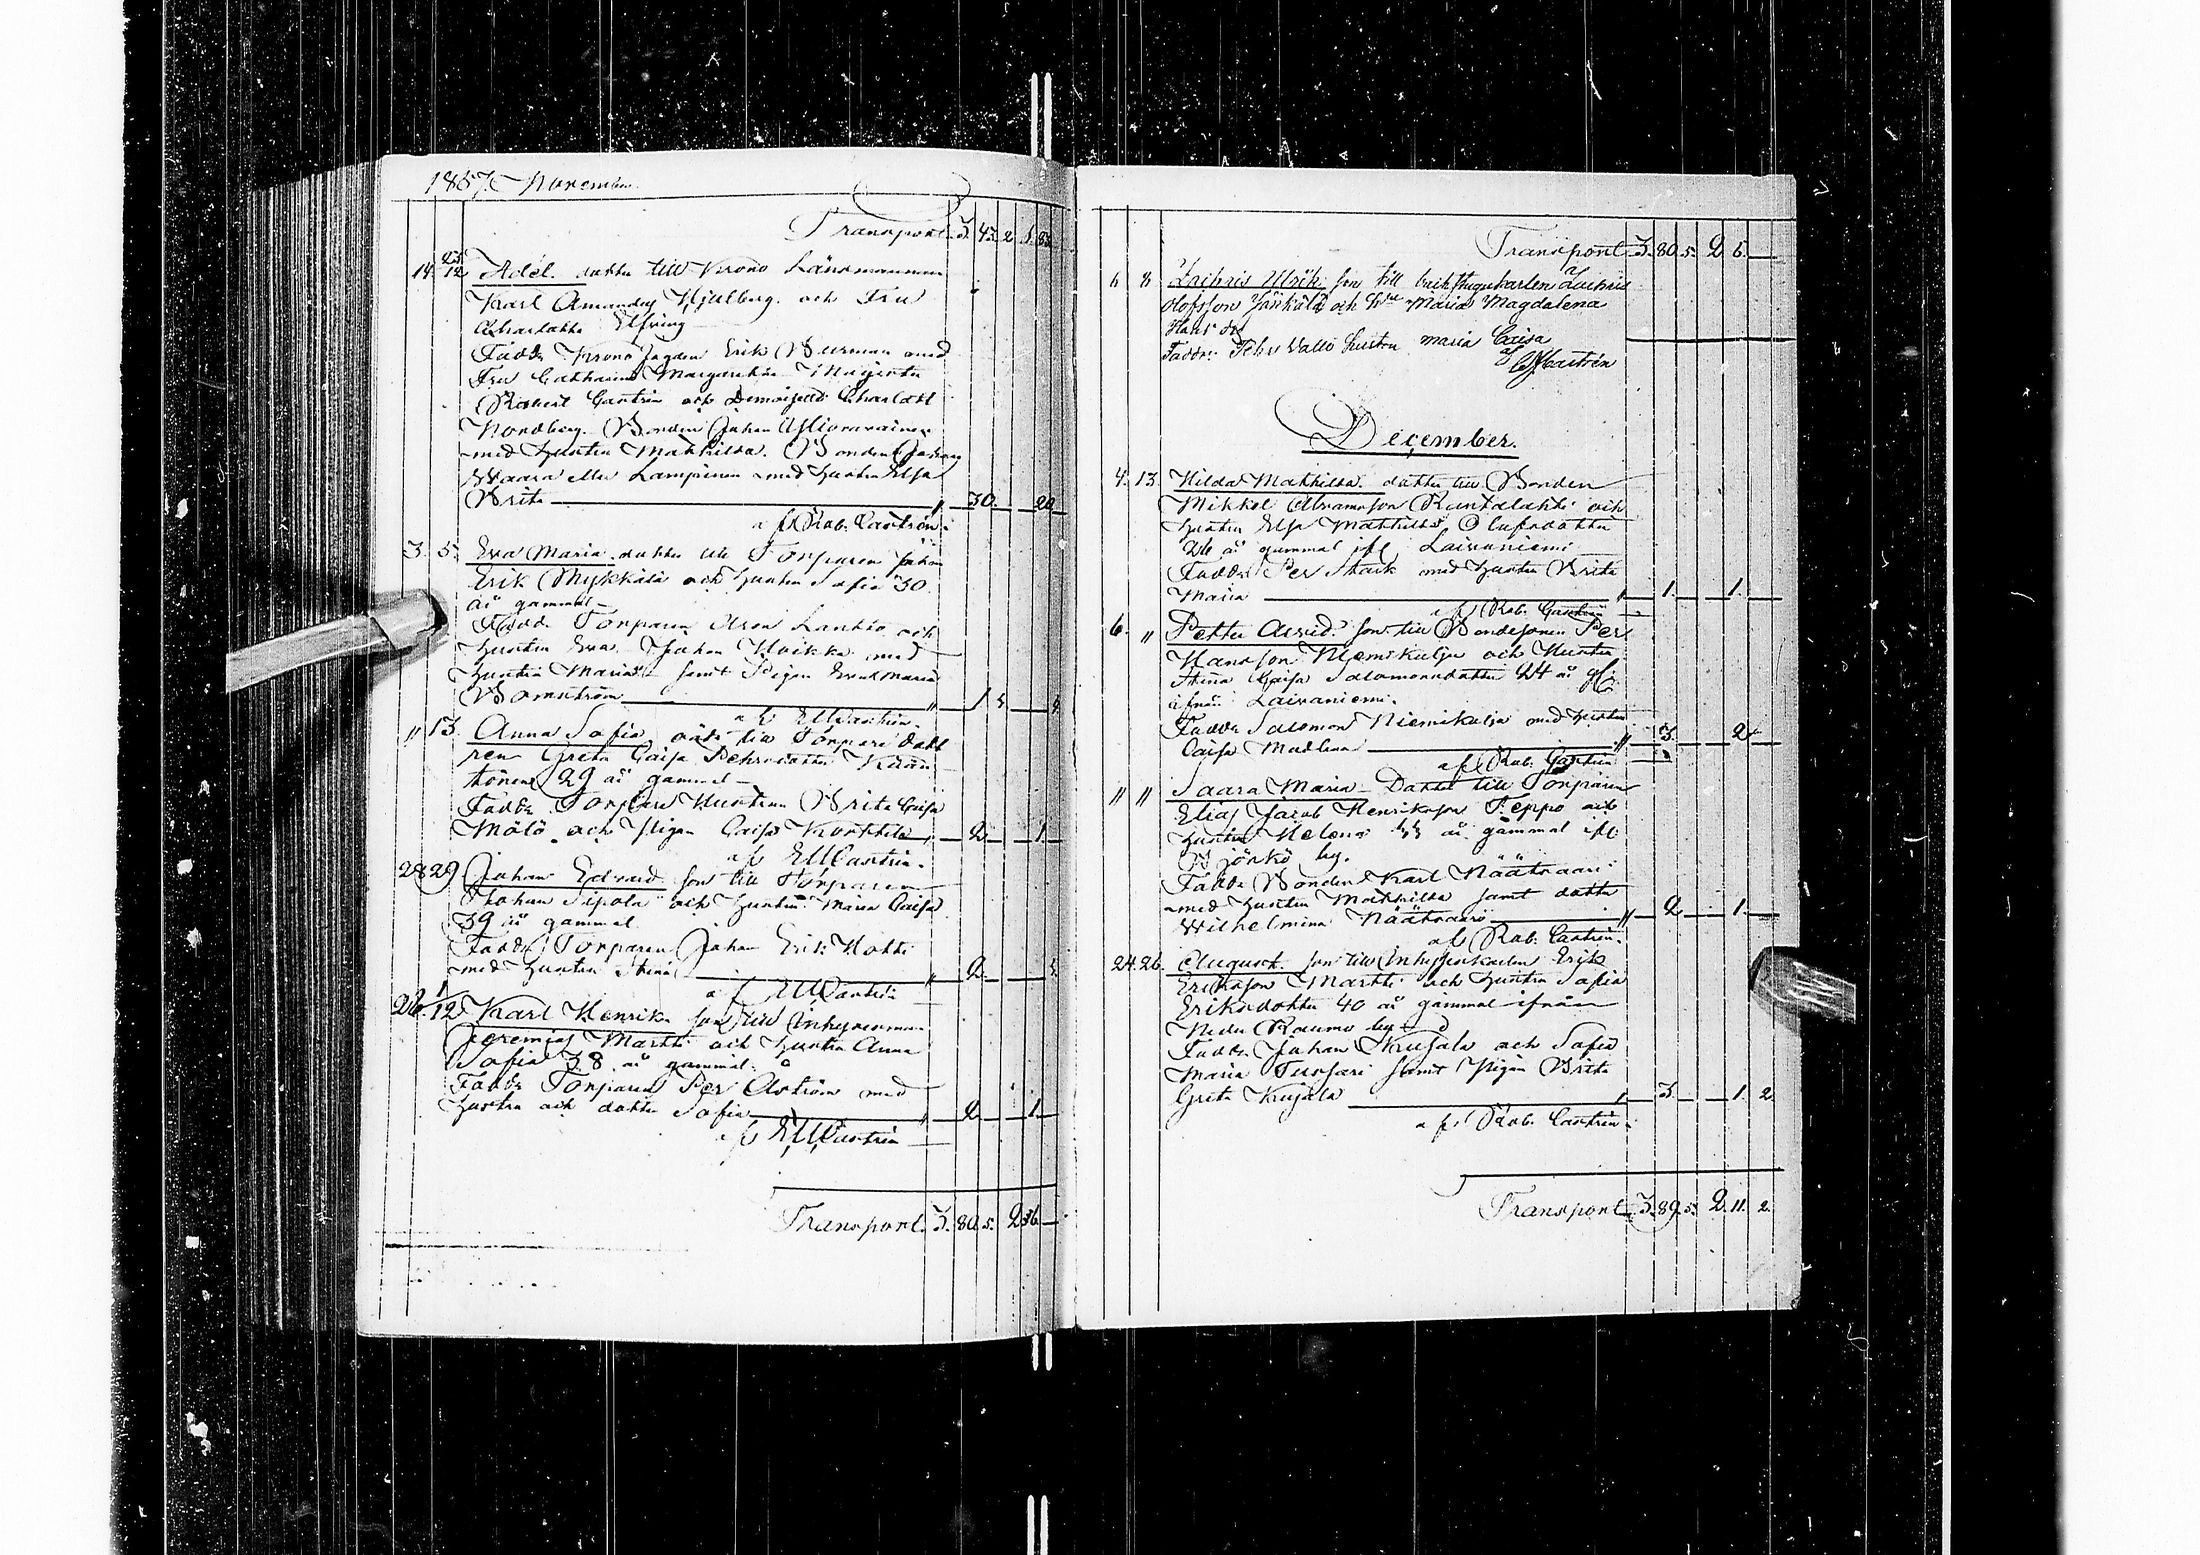 1857. November
Transport 3. 43. 2
14. 25/12 Adél. dotter till Krono Länsmannen
Karl Amandus Hjulberg och Fru
Charlotta Elfving
Fadd. Krono fogden Erik Burman med
Fru Catharina Margaretha Magister
Robert Castrén och Demoiselle Charlott
Nordberg. Bonden Johan
med hustru Mathilda. Bonden
Waara eller Lampinen med hustru Elsa
Brita " 30. 20
af Rob. Castrén.
3. 5. Eva Maria dotter till Torparen Johan
Erik Mykkälä och hustru Sofia 30
år gammal
Fadd. Torparen Aron Lantto och
hustru Eva. Johan Hoikka med
hustru Maria samt Pigan Eva Maria
Bomström " 1
af EMCastrén.
" 13. Anna Sofia, oäkta till Torpare dott
ren Greta Caisa Pehrsdotter
29 år gammal
Fadd. Torpare Hustrun Brita Caisa
Mälö och Pigan Caisa Korttila " 2 1.
af EMCastrén.
28 29 Johan Edvard son till Torparen
Johan Sipola och hustru Maria Caisa
39 år gammal
Fadd. Torparen Johan Erik Hotti
med hustru Stina " 2
af EMCastrén
26. 1/12 Karl Henrik son till Inhysesman
Jeremias Martti och hustru Anna
Sofia 38 år gammal.
Fadd. Torparen Per Åström med
hustru och dotter Sofia " 2 1.
af EMCastrén
Transport 3. 80. 5. 2 36
Transport 3. 80. 5. 2 6.
6 8 Zachris Ulrik son till backstugukarlen Zachris
Olofsson Jänkälä och Hu Maria Magdalena
Hans dr
Faddr: Pehr Vallo hustru maria Caisa
af Castrén
December.
4. 13. Hilda Mathilda dotter till Bonden
Mikkel Abramsson Rantalahti och
hustru Elsa Mathilda Olufsdotter
26 år gammal ifl. Laivaniemi
Fadd. Per Stark med hustru Brita
Maria " 1. 1.
af Rob. Castrén
6. " Petter Arvid. son till Bondesonen Per
Hansson Niemikulju och Hustru
Stina Caisa Salomonsdotter 24 år gl.
ifrån Laivaniemi.
Fadd. Salomon Niemikulju med hustru
Caisa Madlena " 3. 2
af Rob. Castrén
" " Saara Maria Dotter till Torparen
Elias Jacob Henriksson Teppo och
hustru Helena 44 år gammal ifl.
Björkö by.
Fadd. Bonden Karl Näätsaari
med hustru Mathilda samt dotter
Wilhelmina Näätsaari " 2 1.
af Rob. Castrén.
24. 26. August. son till Inhyseskarlen Erik
Eriksson Martti och hustru Sofia
Eriksdotter 40 år gammal ifrån
Neder Raumo by
Fadd. Johan Kujala och Sofia
Maria Tuopari samt Pigan Brita
Greta Kujala " 3. 1. 2.
af Rob. Castrén.
Transport 3. 89. 5. 2. 11. 2.